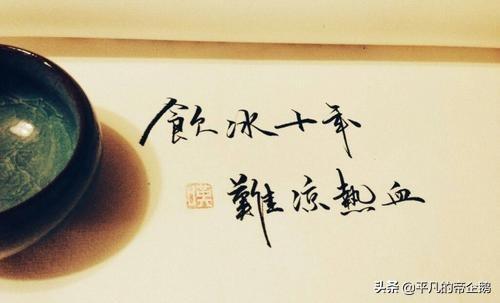 飲冰十年
難涼熱血
头条 @平凡的帝企鹅